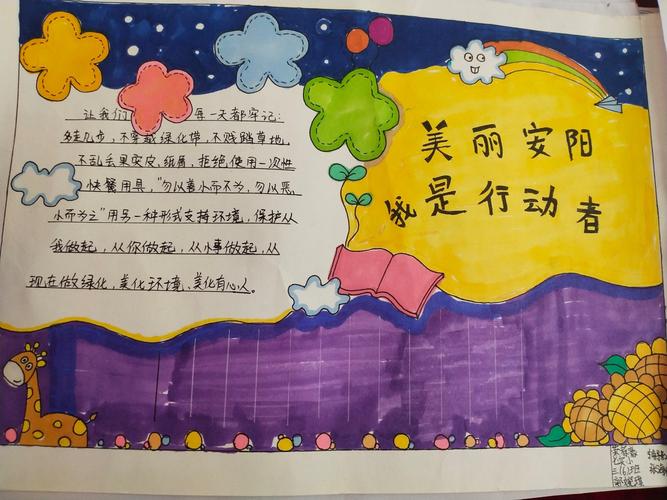 美丽安阳
我是行动者
让我们每一天都牢记:
多走几步,不穿越绿化带,不贱踏草地,
不乱丢果实皮、纸屑,拒绝使用一次性
快餐用具,"勿以善小而不为,勿以恶
小而为之"用另一种形式支持环境,保护从
我做起,从你做起,从小事做起,从
现在做绿化,美化环境、美化有心人。
三(6)班